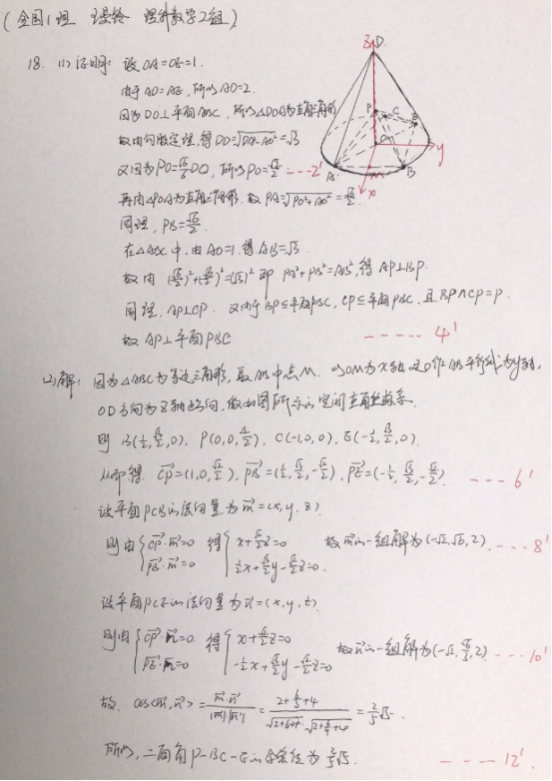 (全国1理 理科数学2组)
18. (1) 证明: 设 OA=OE=1.
由于 AD=AE, 所以 AD=2.
因为 DO⊥平面ABC, 所以△DOA为直角三角形
故由勾股定理, 得 DO=√(DA²-AO²)=√3
又因为 PO=√6/6 DO, 所以 PO=√2/2 ---2'
再由△POA为直角三角形. 故 PA=√(PO²+AO²)=√6/2.
同理, PB=√6/2.
在△ABC中, 由 AO=1. 得 AB=√3.
故由 (√6/2)²+(√6/2)²=(√3)² 即 PA²+PB²=AB², 得 AP⊥BP.
同理, AP⊥CP. 又由于 BP⊆平面PBC, CP⊆平面PBC, 且 BP∩CP=P.
故 AP⊥平面PBC ----- 4'
(2) 解: 因为△ABC为等边三角形, 取AB中点M. 以OM为x轴 过O作AB平行线为y轴,
OD方向为z轴方向, 做如图所示的空间直角坐标系.
则 B(1/2, √3/2, 0), P(0,0,√2/2), C(-1,0,0), E(-1/2, √3/2, 0).
从而得. CP=(1,0,√2/2), PB=(1/2, √3/2, -√2/2), PE=(-1/2, √3/2, -√2/2). --- 6'
设平面PCB的法向量为 m=(x,y,z)
则由 {CP·m=0 PB·m=0 得 {x+√2/2z=0 1/2x+√3/2y-√2/2z=0. 故m的一组解为(-√2, √6, 2). ---8'
设平面PCE的法向量为 n=(x,y,z)
则由 {CP·n=0 PE·n=0 得 {x+√2/2z=0 -1/2x+√3/2y-√2/2z=0 故n的一组解为(-√2, √6/3, 2) ---10'
故. cos<m,n>=m·n/|m||n|=
=2/5√5.
所以, 二面角P-BC-E的余弦值为 2/5√5. --- 12'
z D
P C
E
O y
A M B
x